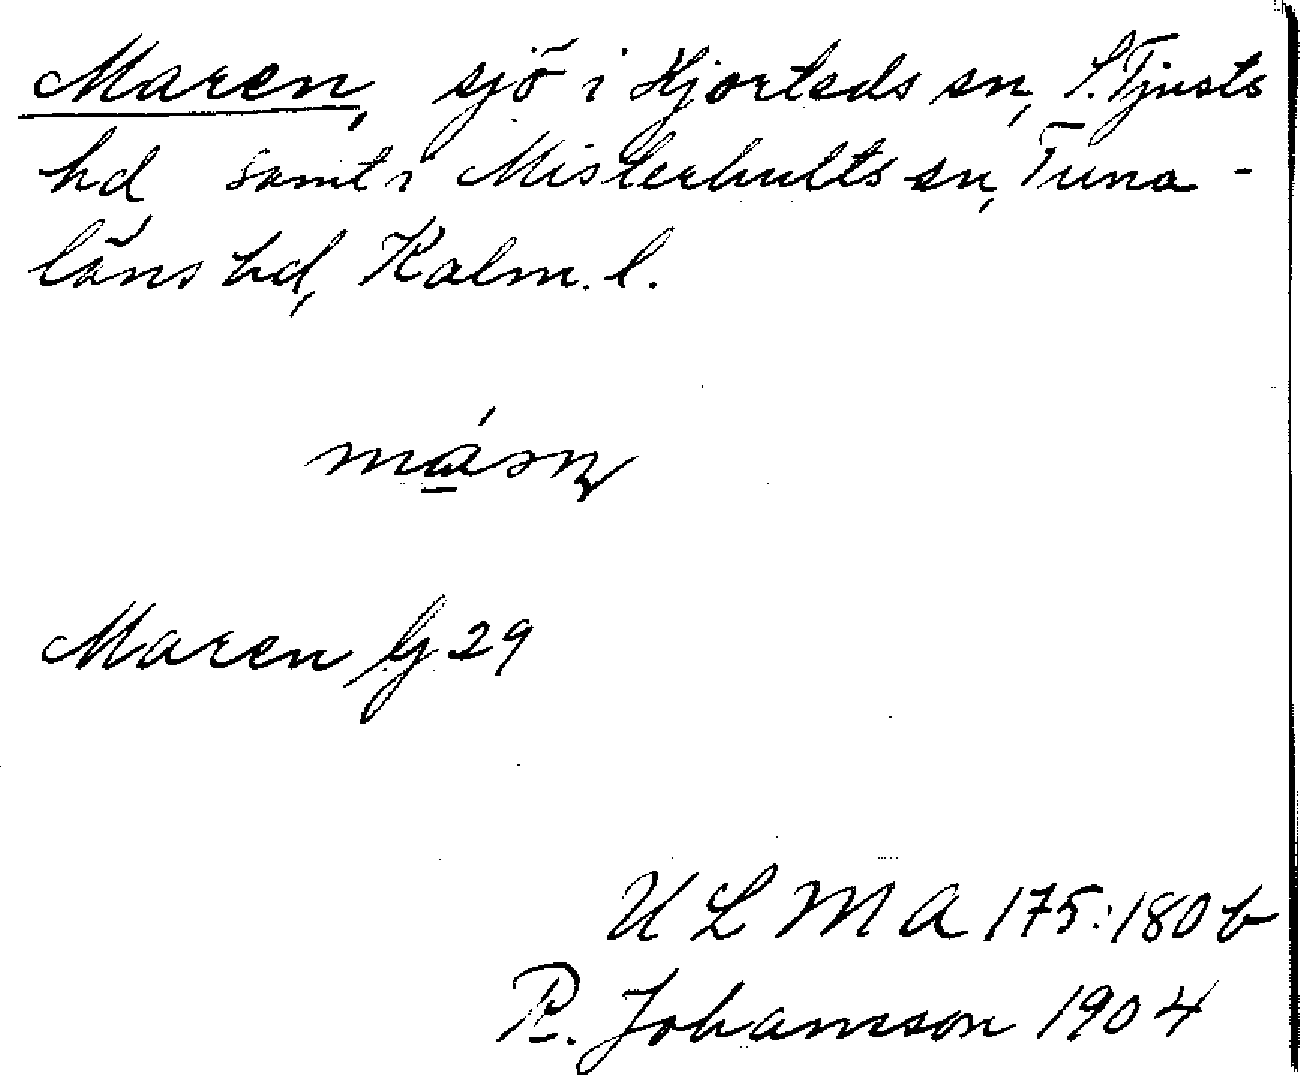 Maren, sjö i Hjorteds sn, S. Tjusts
hd samt i Misterhults sn, Tuna-
läns hd, Kalm. l.
Maren G 29
ULMA 175:180 b
R. Johansson 1904